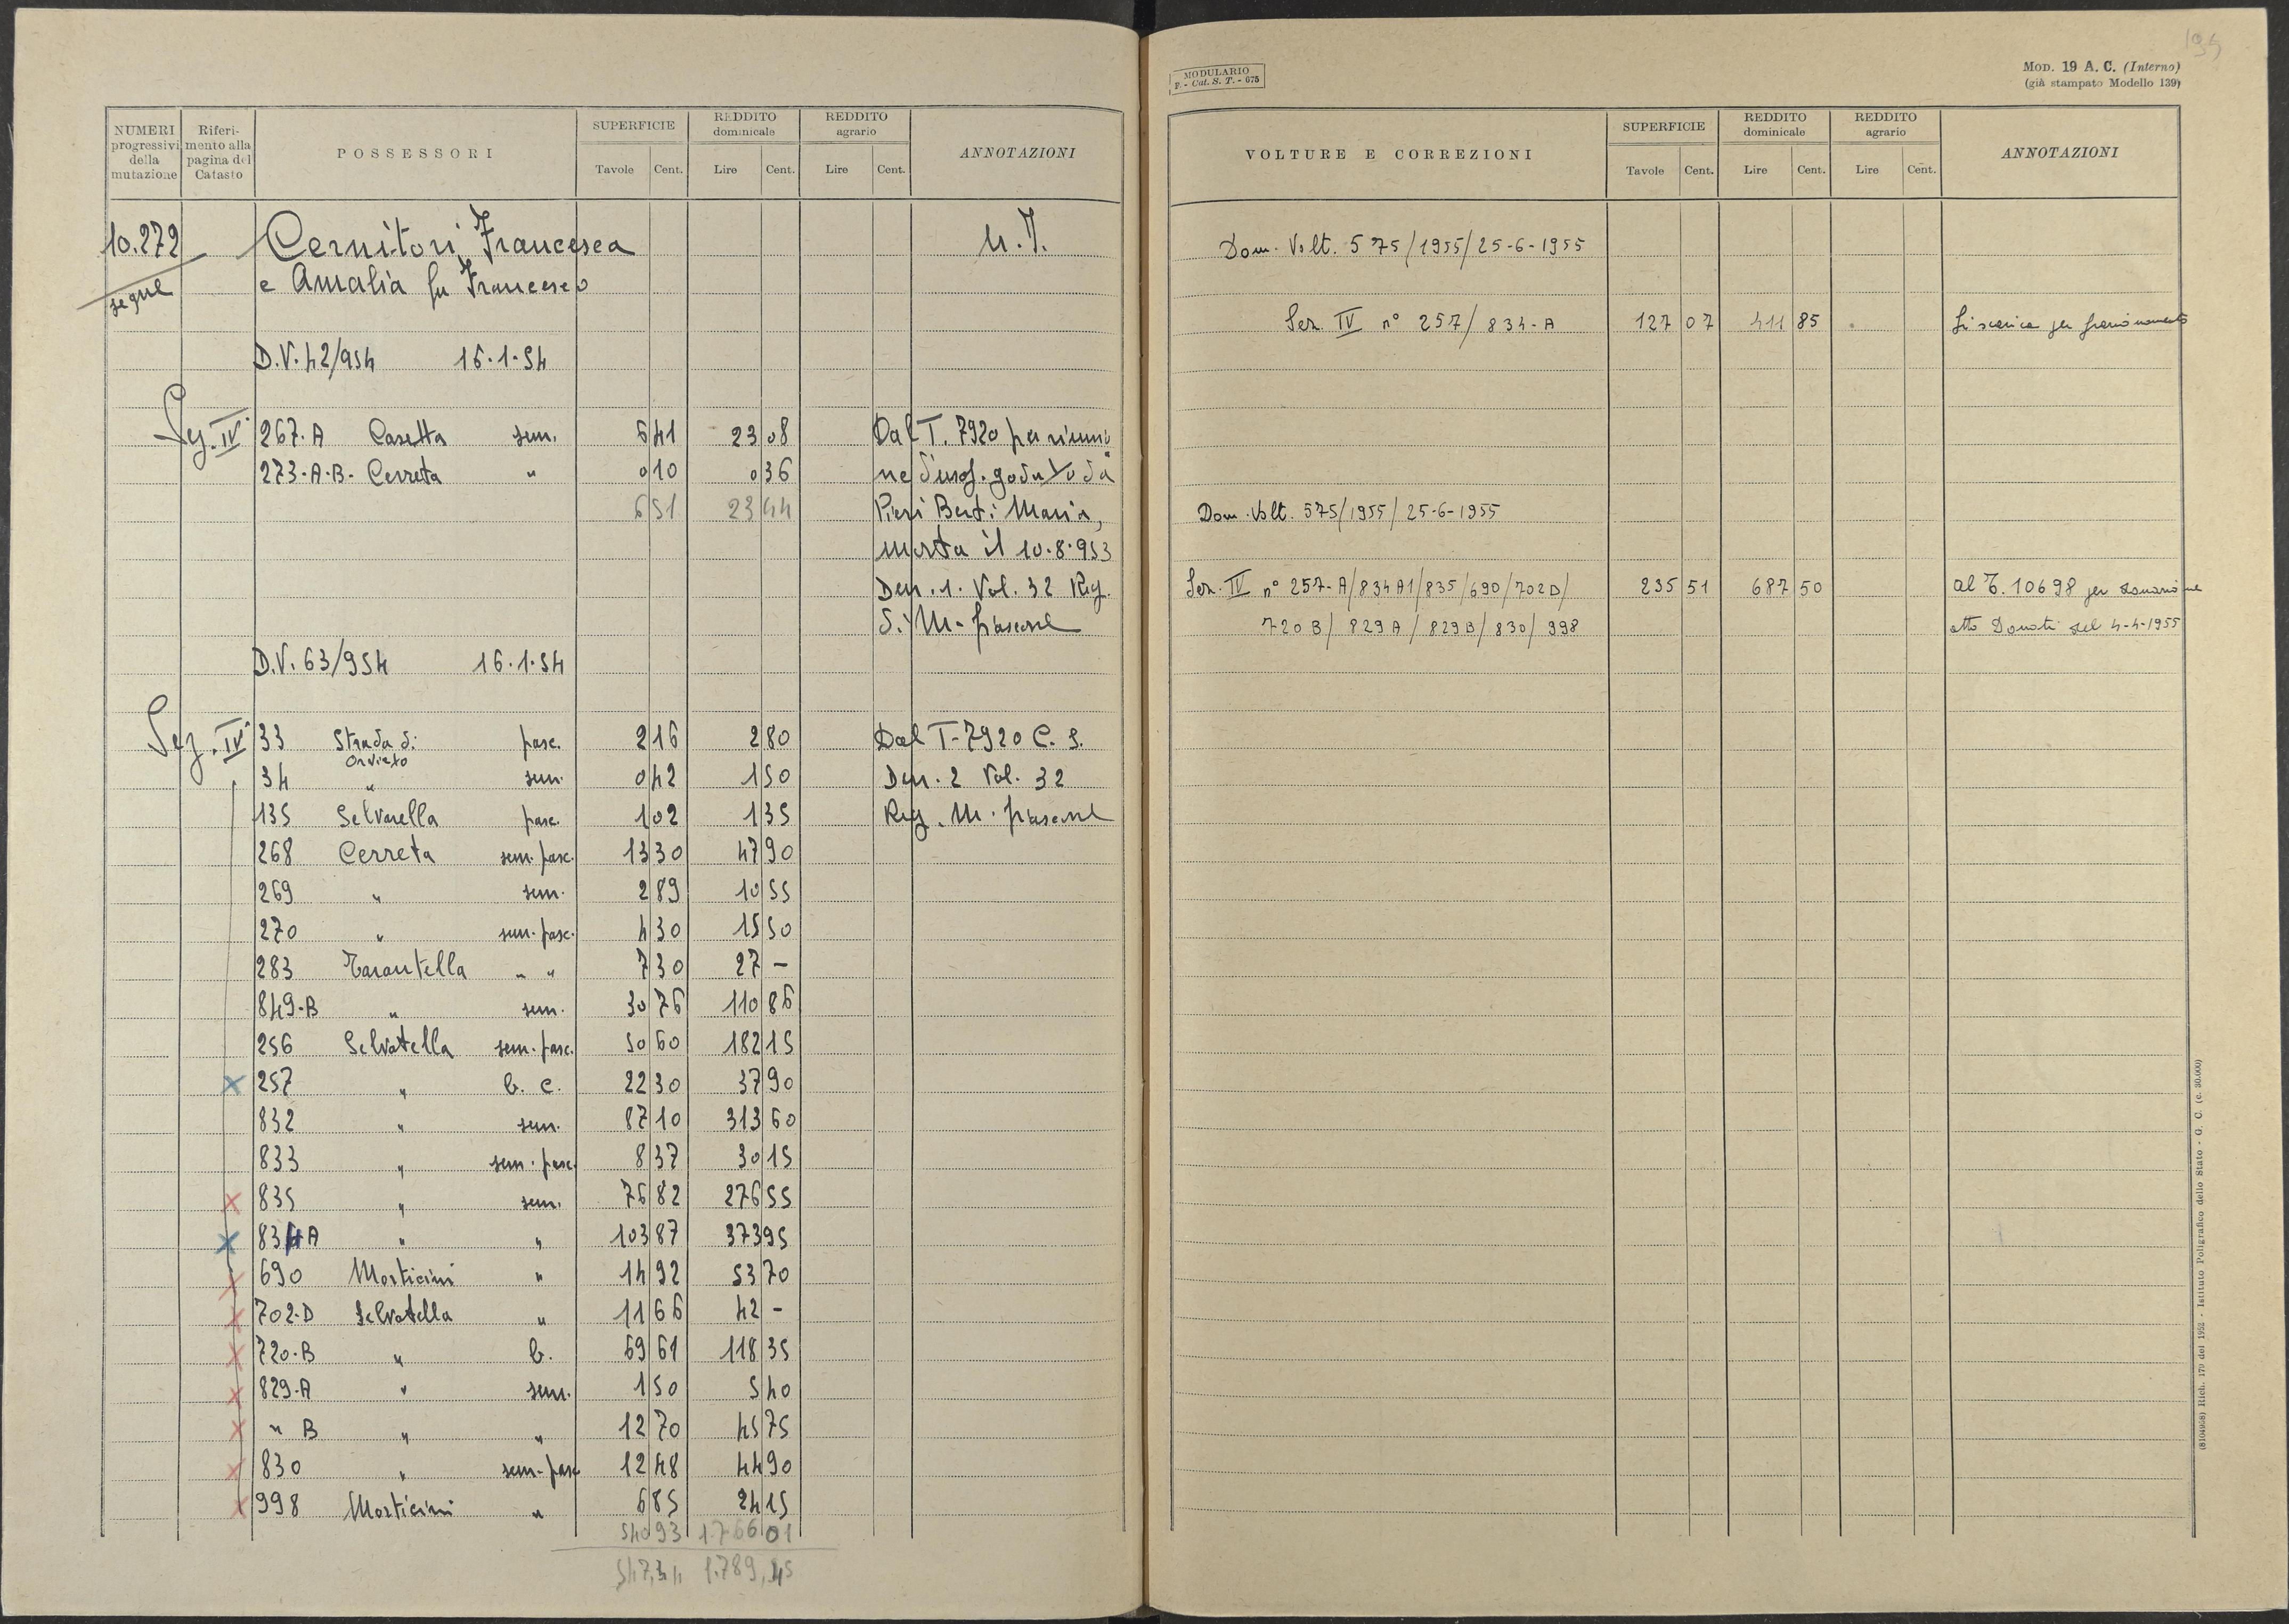 NUMERI progressivi della mutazione | Riferimento alla pagina del Catasto | POSSESSORI | SUPERFICIE Tavole Cent. | REDDITO dominicale Lire Cent. | REDDITO agrario Lire Cent. | ANNOTAZIONI
10.272 Cernitori Francesca M.I.
segue e Amalia fu Francesco
D.V. 42/954 16.1.54
Sez. IV 267.A Casetta sem. 6 41 23 08 Dal T. 7920 per riunio
273-A-B- Cerreta " 0 10 0 36 ne d'usuf. goduto da
6 51 23 44 Pieri Berti Maria,
morta il 10.8.953
Den. 1. Vol. 32 Reg.
di M-fiascone
D.V. 63/954 16.1.54
Sez. IV 33 Strada di Orvieto pasc. 2 16 2 80 Dal T-7920 C. S.
34 " sem. 0 42 1 50 Den. 2 Vol. 32
135 Selvarella pasc. 1 02 1 35 Reg. M. fiascone
268 Cerreta sem. pasc. 13 30 47 90
269 " sem. 2 89 10 55
270 " sem. pasc. 4 30 15 50
283 Tarantella " " 7 30 27 -
849-B " sem. 30 76 110 86
256 Selvatella sem. pasc. 50 60 182 15
x 257 " b. c. 22 30 37 90
832 " sem. 87 10 313 60
833 " sem. pasc. 8 37 30 15
x 835 " sem. 76 82 276 55
x 834A " " 103 87 373 95
x 690 Morticini " 14 92 53 70
x 702-D Selvatella " 11 66 42 -
x 720-B " b. 69 61 118 35
x 829-A " sem. 1 50 5 40
x " B " " 12 70 45 75
x 830 " sem-pasc 12 48 44 90
x 998 Morticini " 6 85 24 15
540 93 1.766 01
547,34 1.789,45
MODULARIO
F. - Cat. S. T. - 675
MOD. 19 A. C. (Interno)
(già stampato Modello 139)
VOLTURE E CORREZIONI | SUPERFICIE Tavole Cent. | REDDITO dominicale Lire Cent. | REDDITO agrario Lire Cent. | ANNOTAZIONI
Dom. Volt. 575/1955/25-6-1955
Sez. IV n° 257/834-A 127 07 411 85 Si scarica per frazionamento
Dom. Volt. 575/1955/25-6-1955
Sez. IV n° 257-A/834A1/835/690/702D/ 235 51 687 50 al T. 10698 per donazione
720B/829A/829B/830/998 atto Donati del 4-4-1955
(8104958) Rich. 170 del 1952 - Istituto Poligrafico dello Stato - G. C. (c. 30.000)